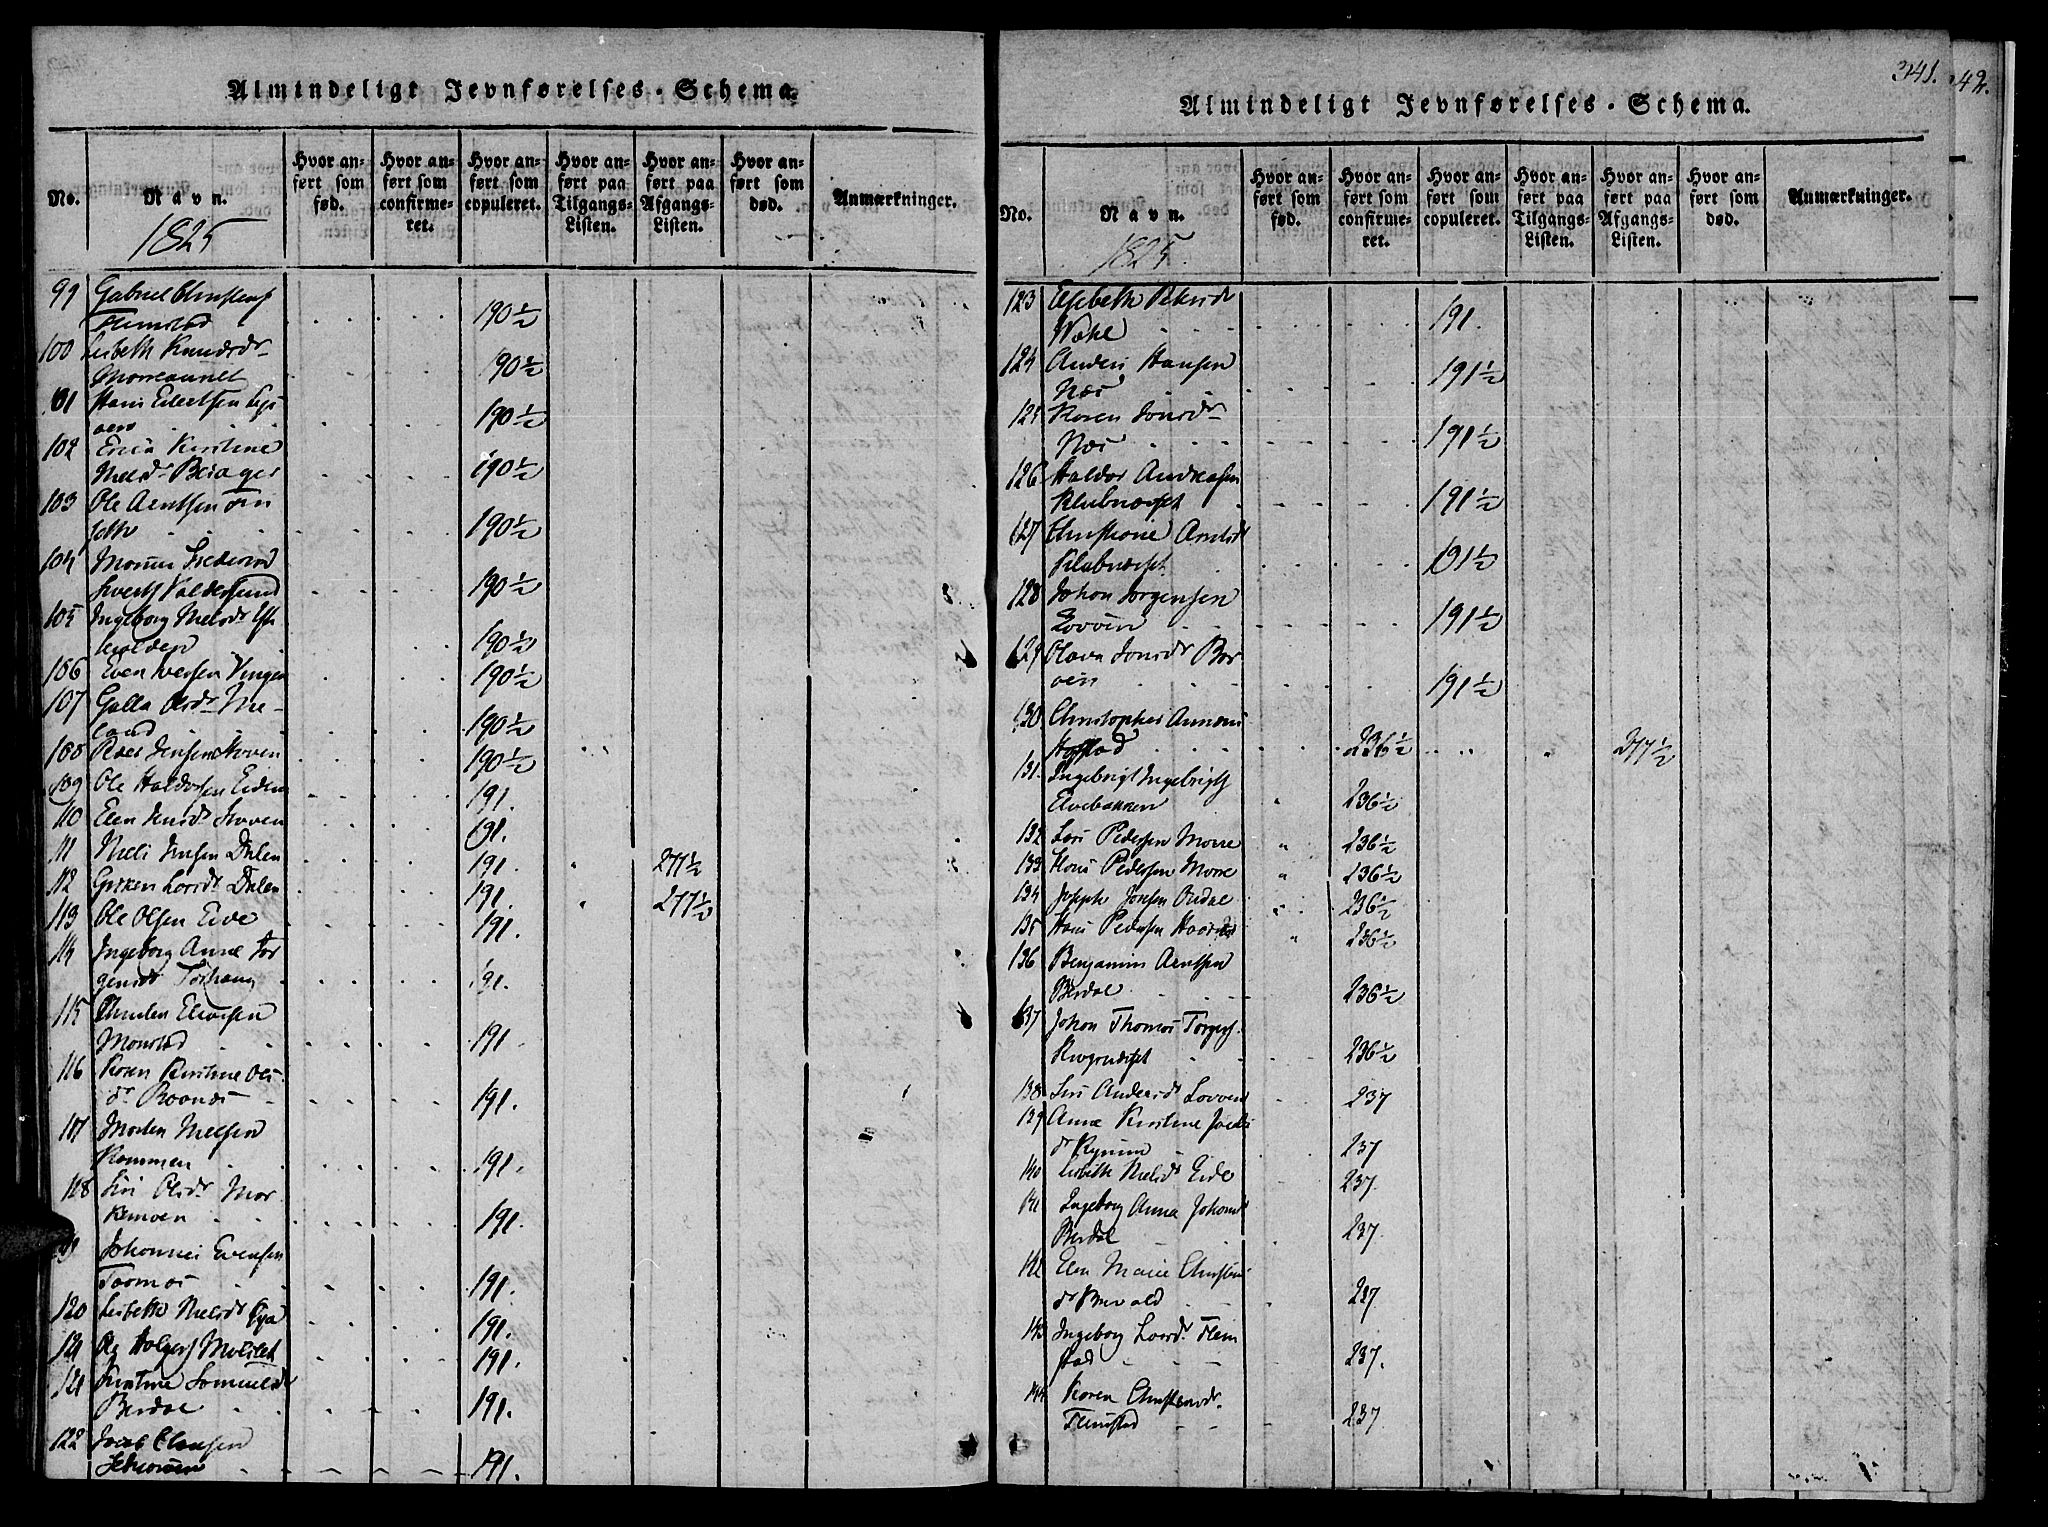 Almindeligt Jevnførelses-Schema.
No.
Navn.
1825
Hvor anført som fød.
Hvor anført som confirmeret.
Hvor anført som copuleret.
Hvor anført paa Tilgangs-Listen.
Hvor anført paa Afgangs-Listen.
Hvor anført som død.
Anmærkninger.
99 Gabriel Christens
Flemstad 190½
100 Lisbeth Knudsdr
Morreaunet 190½
101 Hans Eilertsen Lys
oen 190½
102 Erica Kirstine
Nielsdr Beiager 190½
103 Ole Arntsen
190½
104 Monsus Frederic
Sverts Valdersund 190½
105 Ingeborg Nielsdr
holden 190½
106 Even Iversen Vingen 190½
107 Golla Olsdr Me-
land 190½
108 Roer Jensen Hoven 190½
109 Ole Haldorsen Eiden 191.
110 Elen Jensdr Hoven 191.
111 Niels Jensen Dalen 191. " 277½
112 Larsdr Dalen 191. " 277½
113 Ole Olsen Eive 191.
114 Ingeborg Anne Jør
gensdr Torhaug 191.
115 Elevsen
Monstad 191
116 Karen Kirstine Ols
dr Raanes 191.
117 Morten Nielsen
Kammen 191.
118 Siri Olsdr Mor
kemoen 191.
119 Johannes Evensen
Tarmos 191.
120 Lisbeth Nielsdr Rya 191.
121 Holgers Melslet 191.
121 Kirstine Samuelsdr
Berdal 191.
122 Jacob Clausen
191.
341.
42.
Almindeligt Jevnførelses-Schema.
No.
Navn.
1825.
Hvor anført som fød.
Hvor anført som confirmeret.
Hvor anført som copuleret.
Hvor anført paa Tilgangs-Listen.
Hvor anført paa Afgangs-Listen.
Hvor anført som død.
Anmærkninger.
123 Elisbeth Petersdr
191.
124 Anders Hansen
Næs 191½
125 Karen Jonsdr
Næs 191½
126 Haldor Andreasen
Klubnæsset 191½
127 Christiane Arntsdr
Klubnæsset 191½
128 Johan Jørgensen
Lovven 191½
129 Olava Jonsdr Bor
oen 191½
130 Christopher Ammons
236½ " 277½
131. Ingebrigt Ingebrigts
Elvebakken " 236½
132 Lars Pedersen Morre " 236½
133 Hans Pedersen Morre " 236½
134 Joseph Jonsen Ordal " 236½
135 Hans Pedersen " 236½
136 Benjamin Arntsen
Berdal 236½
137 Johan Thomas Torgers.
Krogsnæsset 236½
138 Siri Andersdr Lovven 237
139 Anne Kirstine Jacobs
dr Rysum 237
140 Lisbeth Nielsdr Eide 237.
141 Ingeborg Anna Johansdr
Berdal 237.
142 Elen Marie Christens
dr Brevold 237
143 Ingeborg Larsdr. Flem
stad 237.
144 Karen Christensdr.
Flemstad 237